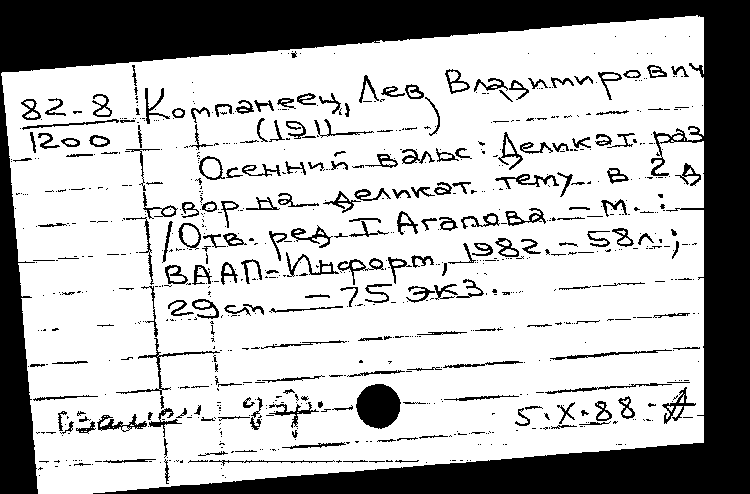 82-8
1200
Компанеец, Лев Владимирович
(191 )
Осенний вальс: Деликат. раз
говор на деликат. тему в 2 д
/Отв. ред. Т. Агапова. - М. :
ВААП-Информ, 1982. - 58л.;
29см. - 75 экз.
взамен
5.X.88.